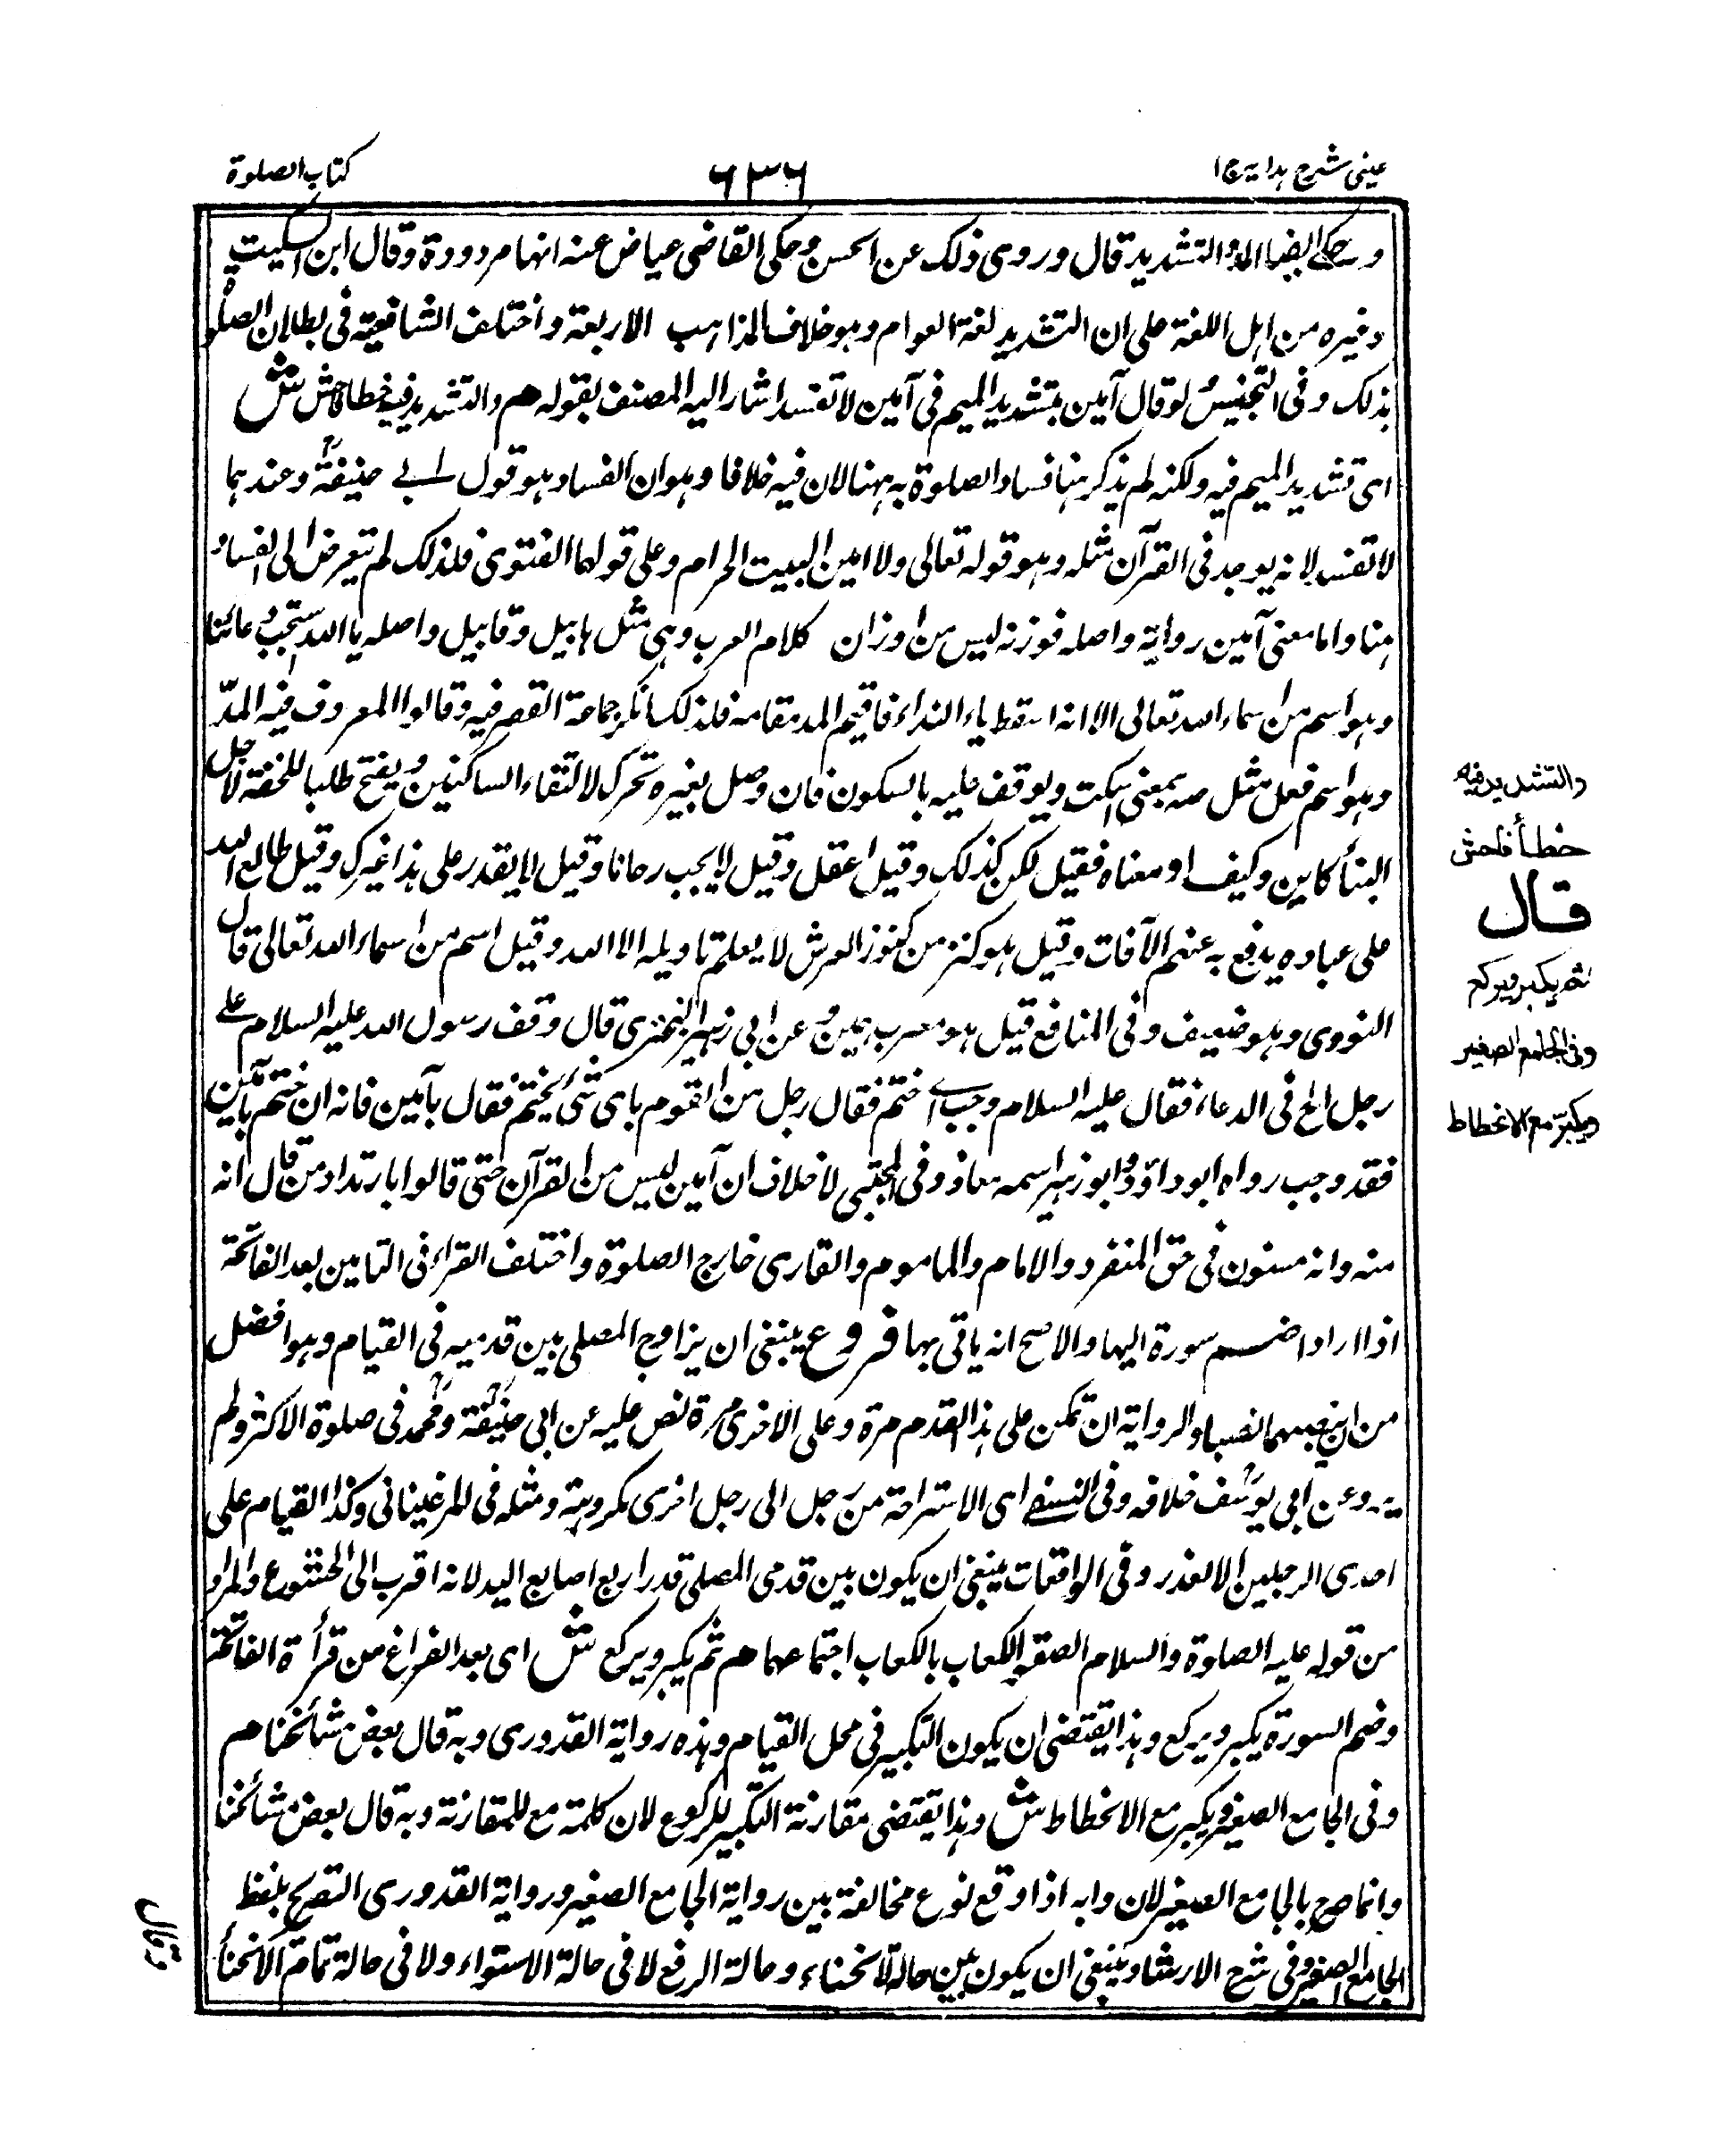 عینی شرح ہدایہ ج ا
٦٣٦
کتاب الصلوة
وحکی ایضا المد والتشدید قال وروی ذلک عن الحسن وحکی القاضی عیاض عنہ انہا مردودة وقال ابن السکیت
وغیرہ من اہل اللغة علی ان التشدید لغة العوام وہو خلاف المذاہب الاربعة واختلف الشافعیة فی بطلان الصلوة
بذلک وفی التجنیس لو قال آمین بتشدید المیم فی آمین لا تفسد اشار الیہ المصنف بقولہ هم والتشدید فیہ خطا فاحش ش
ای تشدید المیم فیہ ولکنہ لم یذکر ہنا فساد الصلوة بہ ہہنا لان فیہ خلافا وہو ان الفساد ہو قول ابے حنیفة وعندہما
لا تفسد لانہ یوجد فی القرآن مثلہ وہو قولہ تعالی ولا امین البیت الحرام وعلی قولہما الفتوی فلذلک لم یتعرض الی الفساد
ہنا واما معنی آمین روایة واصلہ فوزنہ لیس من اوزان کلام العرب وہی مثل ہابیل وقابیل واصلہ یا اللہ استجب دعائنا
وہو اسم من اسماء اللہ تعالی الا انہ اسقط یاء النداء فاقیم المد مقامہ فلذلک انکر جماعة القصر فیہ وقالوا المعروف فیہ المدّ
وہو اسم فعل مثل صہ بمعنی اسکت ویوقف علیہ بالسکون فان وصل بغیرہ تحرک لالتقاء الساکنین ویفتح طلبا للخفة لاجل
البنأ کاین وکیف او معناہ فقیل لکن کذلک وقیل اعقل وقیل لا یجب رجانا وقیل لا یقدر علی ہذا غیرک وقیل طابع اللہ
علی عبادہ یدفع بہ عنہم الآفات وقیل ہو کنز من کنوز العرش لا یعلم تاویلہ الا اللہ وقیل اسم من اسماء اللہ تعالی قال
النووی وہو ضعیف وفی المنافع قیل ہو معرب ہمین وعن ابی زہیر النمیری قال وقف رسول اللہ علیہ السلام علے
رجل الح فی الدعاء فقال علیہ السلام وجب ان ختم فقال رجل من القوم بای شئ یختم فقال بآمین فانہ ان ختم بآمین
فقد وجب رواہ ابو داؤد وابو زہیر اسمہ معاذ وفی المجتبی لا خلاف ان آمین لیس من القرآن حتی قالوا بارتداد من قال انہ
منہ وانہ مسنون فی حق المنفرد والامام والماموم والقاری خارج الصلوة واختلف القراء فی التامین بعد الفاتحة
اذا اراد ضم سورة الیہا والاصح انہ یاتی بہا فروع ینبغی ان یزاوج المصلی بین قدمیہ فی القیام وہو افضل
من ان ینصبہما نصبا والروایة ان تمکن علی ہذا القدم مرة وعلی الاخری مرة نص علیہ عن ابی حنیفة ومحمد فی صلوة الاکثر ولم
یہ وعن ابی یوسف خلافہ وفی النسفے ای الاستراحة من رجل الی رجل اخری مکروہة ومثلہ فی المرغینانی وکذا القیام علی
احدی الرجلین الا لعذر وفی الواقعات ینبغی ان یکون بین قدمی المصلی قدر اربع اصابع الید لانہ اقرب الی الخشوع والمراد
من قولہ علیہ الصلوة والسلام الصقوا الکعاب بالکعاب اجتماعہما هم ثم یکبر ویرکع ش ای بعد الفراغ من قرأة الفاتحة
وضم السورة یکبر ویرکع وہذا یقتضی ان یکون التکبیر فی محل القیام وہذہ روایة القدوری وبہ قال بعض مشائخنا هم
وفی الجامع الصغیر ویکبر مع الانحطاط ش وہذا یقتضی مقارنة التکبیر للرکوع لان کلمة مع للمقارنة وبہ قال بعض مشائخنا
وانما صرح بالجامع الصغیر لان دابہ اذا وقع نوع مخالفة بین روایة الجامع الصغیر وروایة القدوری التصریح بلفظ
الجامع الصغیر وفی شرح الارشاد ینبغی ان یکون بین حالة الانحناء وحالة الرفع لا فی حالة الاستواء ولا فی حالة تمام الانحنأ
والتشدید فیہ
خطأ فاحش
قال
ثم یکبر ویرکع
وفی الجامع الصغیر
ویکبّر مع الانحطاط
وقال